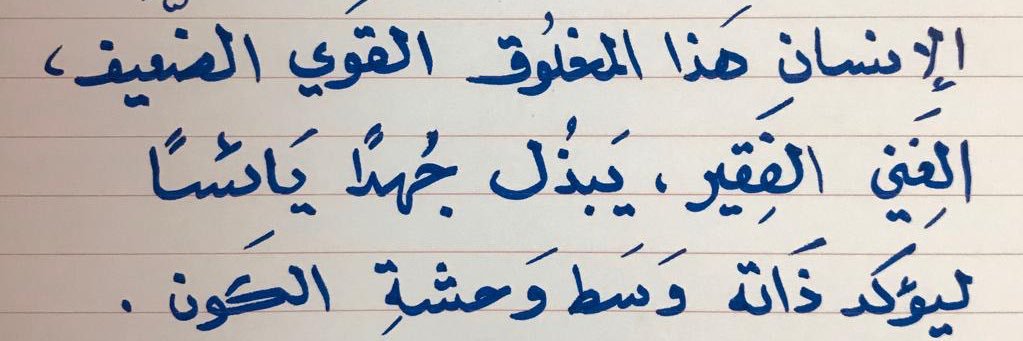 الإنسان هَذا المخلُوق القوَي الضعيف،
الغَني الفَقِير، يَبذُل جُهدًا يَائسًا
ليؤَكد ذَاته وَسَط وَحشةِ الكَون.